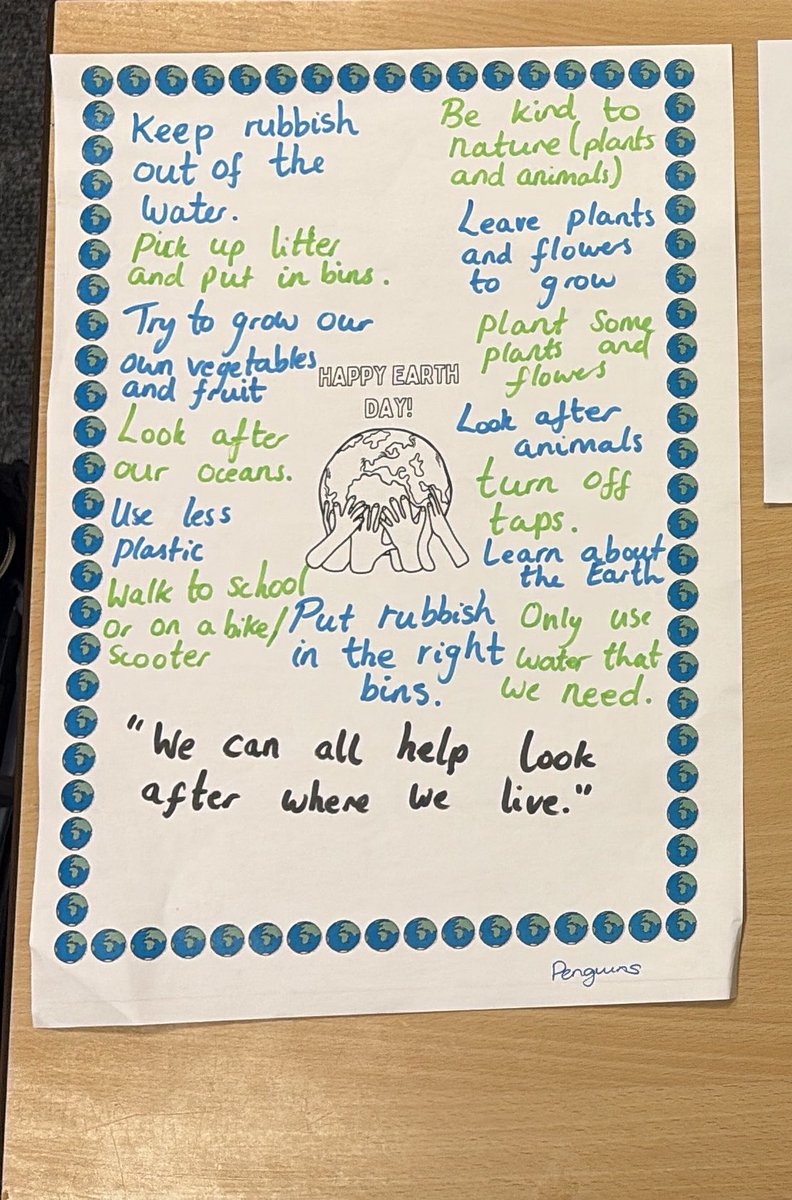 Keep rubbish
out of the
water.
Pick up litter
and put in bins.
Try to grow our
own vegetables
and fruit
Look after
our oceans.
Use less
plastic
Walk to school
or on a bike/
scooter
Be kind to
nature (plants
and animals)
Leave plants
and flowers
to grow
plant some
plants and
flowers
Look after
animals
turn off
taps.
Learn about
the Earth
HAPPY EARTH
DAY!
Put rubbish
in the right
bins.
Only use
water that
we need.
"We can all help look
after where we live."
Penguins